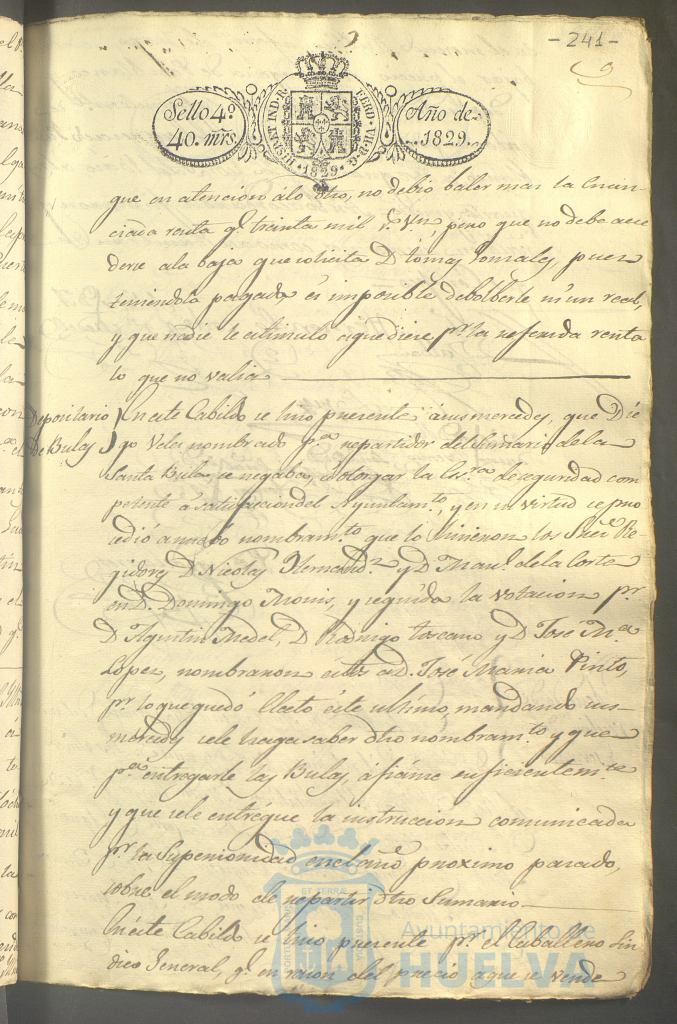 - 241 -
9
Sello 4º
40. mrs.
HISP. ET IND. R.
FERD. VII. D. G.
1829
Año de
1829.
que en atencion álo dtro, no debio baler mas la Enun-
ciada renta q.e treinta mil r.s V.n, pero que no debe acce
derse ala baja que solicita D Tomas Gonzales, pues
teniendola pagada es imposible debolberle ni un real,
y que nadie le estimulo aque diese p.r la referida renta
lo que no valia
Depositario
de Bulas
En este Cabildo se hizo presente á sus mercedes, que Die
go Vela nombrado p.a repartidor del Sumario de la
Santa Bula, se negaba, á otorgar la Es.ra de seguridad com
petente á satisfaccion del Ayuntam.to, y en su virtud se pro
cedió a nuebo nombram.to que lo hicieron los Sres. Re
gidores D. Nicolas Hernand.z y D Man.l de la Corte
en D. Domingo Monis, y seguida la votacion p.r
D Agustin Medel, D Rodrigo toscano y D José M.a
Lopez, nombraron estos a D. José Maria Pinto,
p.r lo que quedó Electo este ultimo, mandando sus
mercedes se le haga saber dtro nombram.to y que
p.a entregarle las Bulas, afiance suficientem.te
y que se le entregue la instruccion comunicada
p.r la Superioridad en el año proximo pasado,
sobre el modo de repartir dtro Sumario
En este Cabildo se hizo presente p.r el Caballero Sin
dico General, q.e en razon del precio aque se vende
Ayuntamiento de
HUELVA